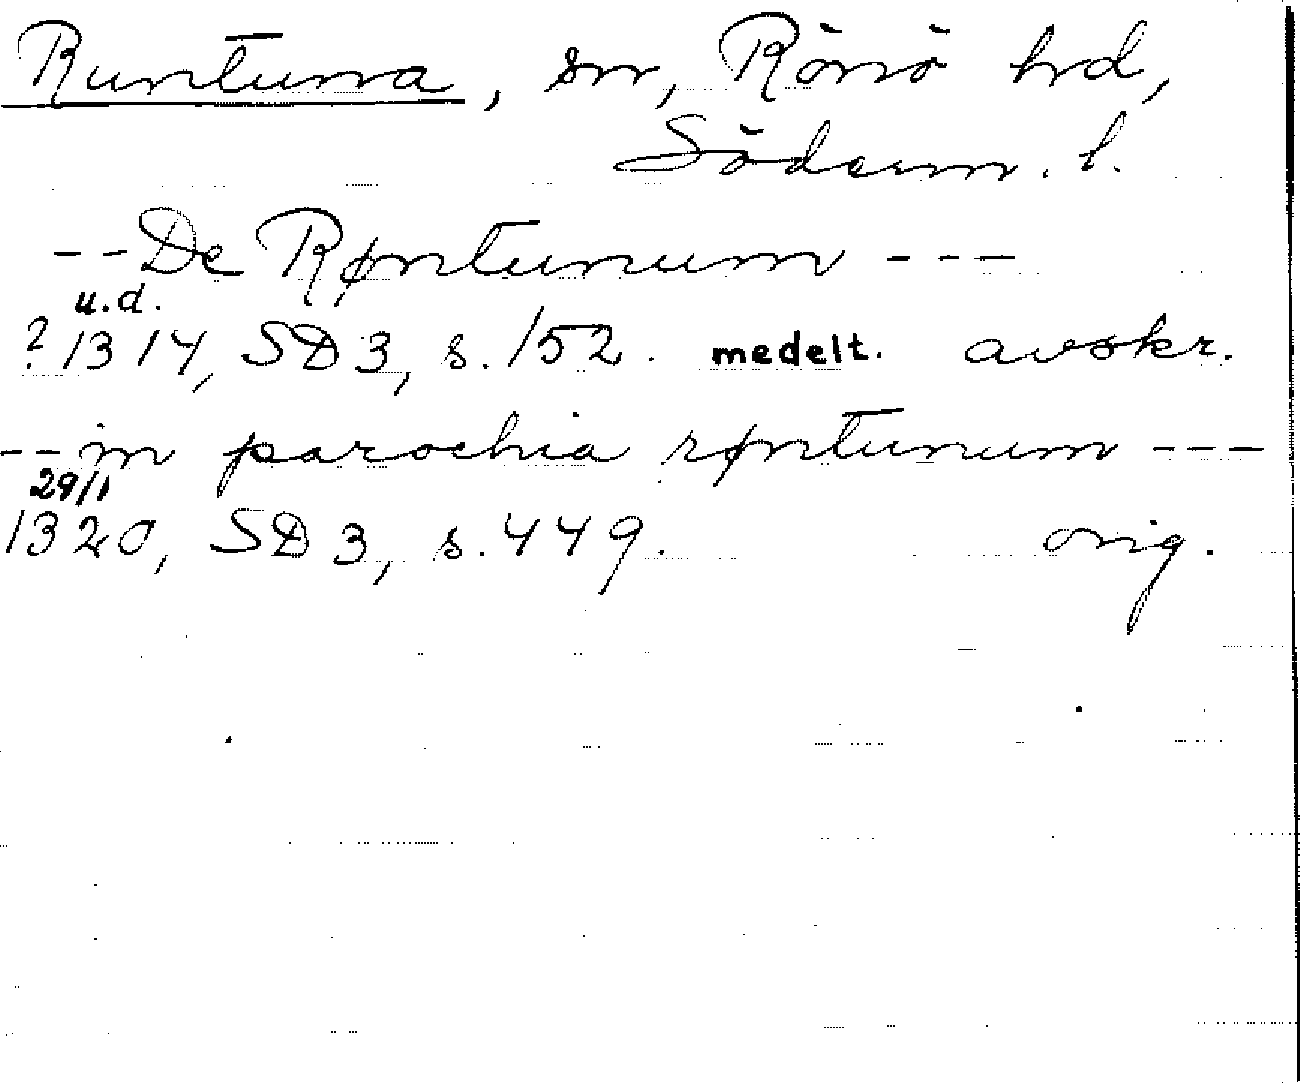 Runtuna, sn, Rönö hrd,
Söderm. l.
-- De Røntunum ---
u.d.
? 1314, SD 3, s. 152. medelt. avskr.
-- in parochia røntunum ---
29/1
1320, SD 3, s. 449. orig.